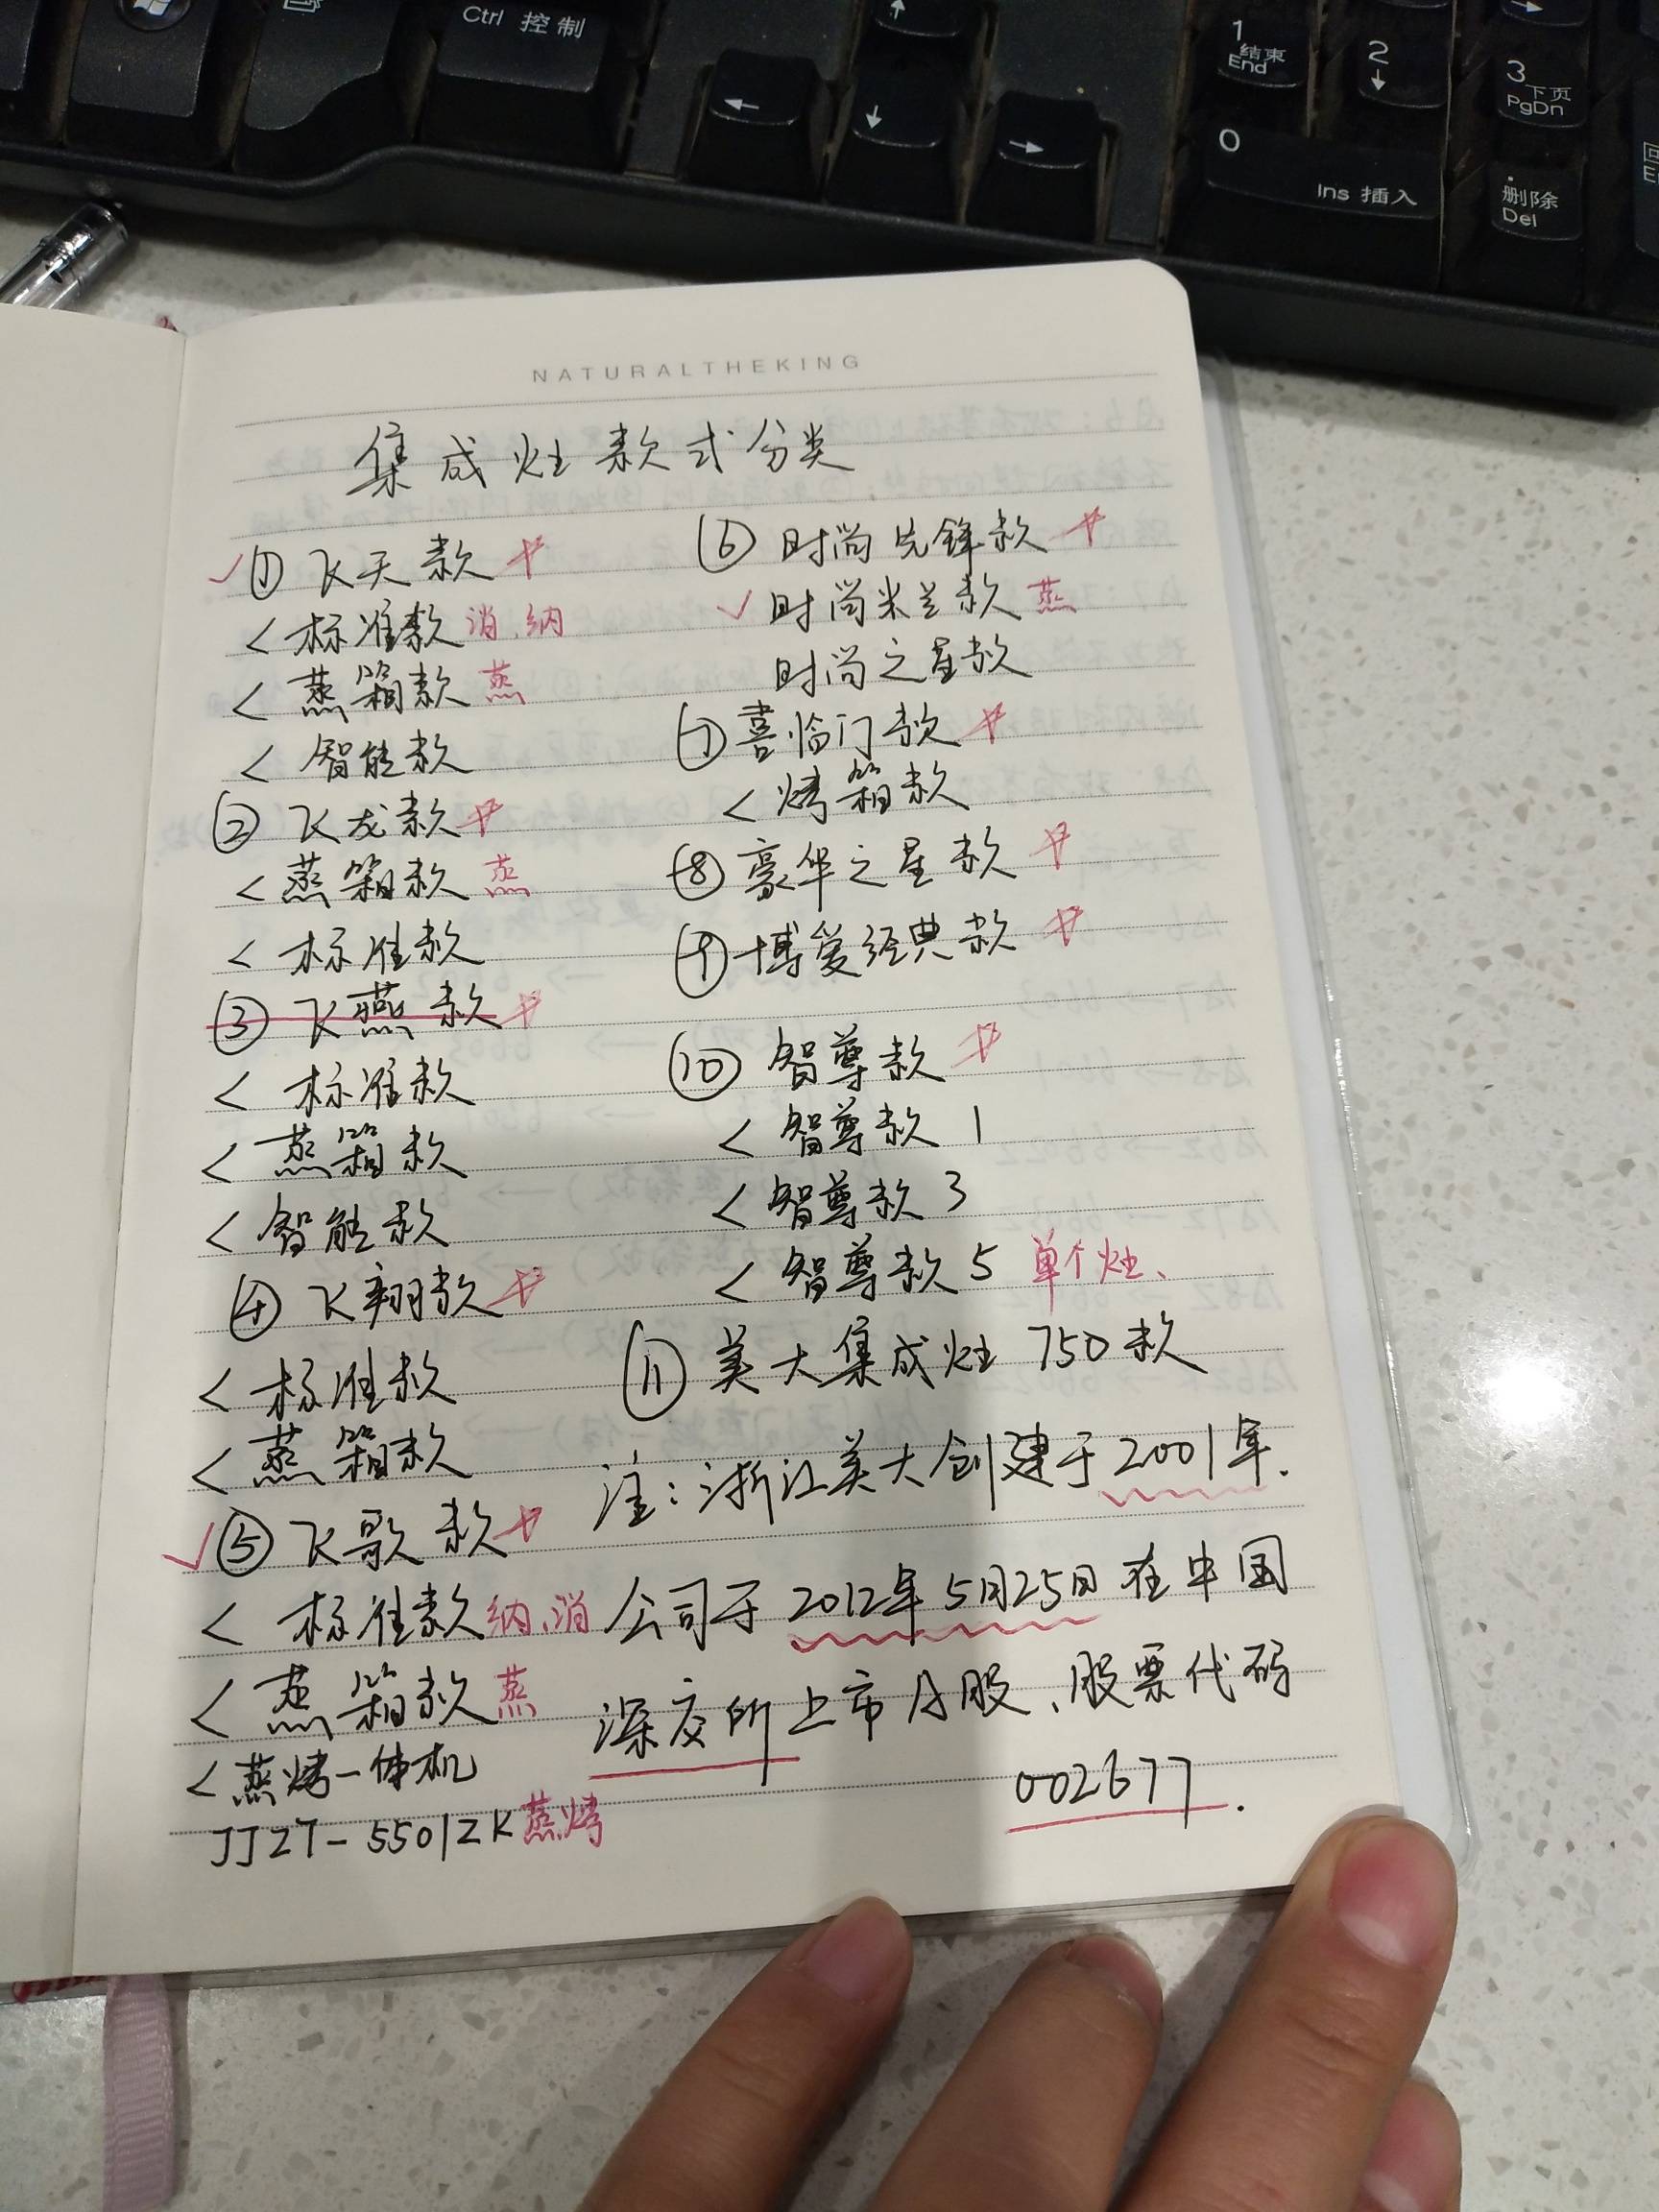 Ctrl 控制
←
↑
↓
→
1 结束 End
2 ↓
3 下页 PgDn
→
0 Ins 插入
. 删除 Del
NATURALTHEKING
集成灶款式分类
✓① 飞天款
< 标准款 消、纳
< 蒸箱款 蒸
< 智能款
② 飞龙款
< 蒸箱款 蒸
< 标准款
③ 飞燕款
< 标准款
< 蒸箱款
< 智能款
④ 飞翔款
< 标准款
< 蒸箱款
✓⑤ 飞歌款
< 标准款 纳、消
< 蒸箱款 蒸
< 蒸烤一体机
JJZT-5501ZK 蒸烤
⑥ 时尚先锋款
✓ 时尚米兰款 蒸
时尚之星款
⑦ 喜临门款
< 烤箱款
⑧ 豪华之星款
⑨ 博爱经典款
⑩ 智尊款
< 智尊款 1
< 智尊款 3
< 智尊款 5 单个灶、
⑪ 美大集成灶 750款
注：浙江美大创建于2001年.
公司于2012年5月25日在中国
深交所上市A股、股票代码
002677.